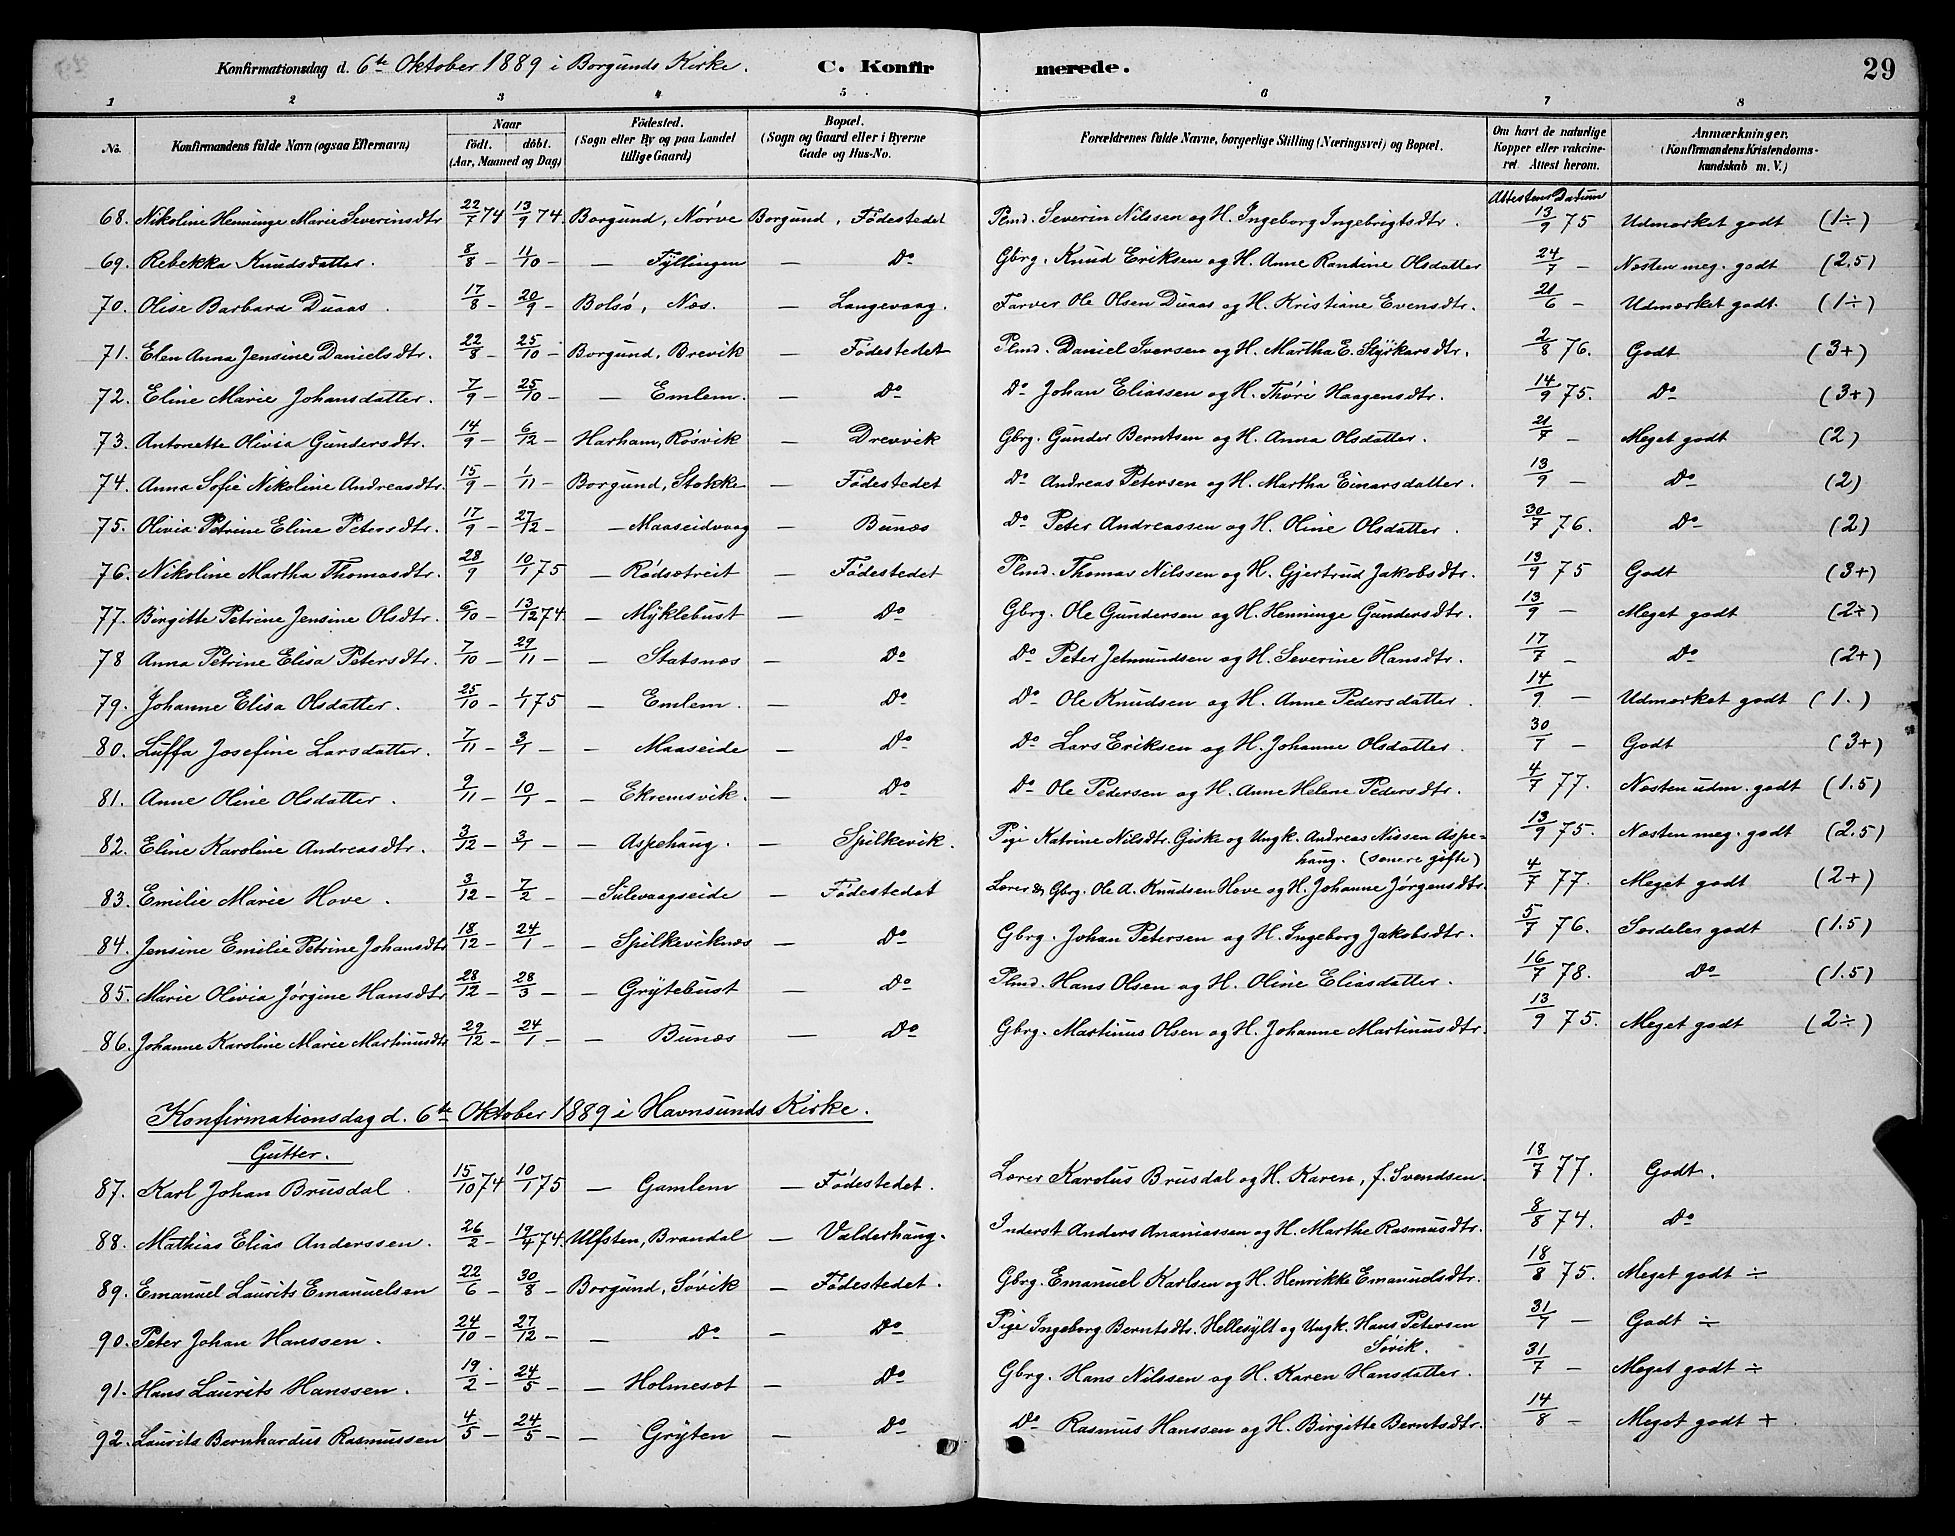 Konfirmationsdag d. 6te Oktober 1889 i Borgunds Kirke. C. Konfirmerede. 29
1 2 3 4 5 6 7 8
No. Konfirmandens fulde Navn (ogsaa Efternavn) Naar födt. döbt. (Aar, Maaned og Dag) Födested. (Sogn eller By og paa Landet tillige Gaard) Bopæl. (Sogn og Gaard eller i Byerne Gade og Hus-No. Forældrenes fulde Navne, borgerlige Stilling (Næringsvei) og Bopæl. Om havt de naturlige Kopper eller vakcineret. Attest herom. Anmærkninger. (Konfirmandens Kristendomskundskab m. V.)
Attestens Datum
68. Nikoline Henninge Marie Severinsdtr. 22/7 74 13/9 74. Borgund, Nörve Borgund, Födestedet Plmd. Severin Nilssen og H. Ingeborg Ingebrigtsdtr. 13/9 75 Udmærket godt (1÷)
69. Rebekka Knudsdatter. 8/8 – 11/10 – – Fyllingen – Do Gbrg. Knud Eriksen og H. Anne Randine Olsdatter 24/7 – Næsten meg. godt (2.5)
70. Olise Barbara Duaas. 17/8 – 20/9 – Bolsö, Næs. – Langevaag. Farver Ole Olsen Duaas og H. Kristiane Evensdtr. 21/6 – Udmærket godt. (1÷)
71. Elen Anna Jensine Danielsdtr. 22/8 – 25/10 – Borgund, Brevik – Födestedet Plmd. Daniel Iversen og H. Martha E. Styrkarsdtr. 2/8 76. Godt (3+)
72. Eline Marie Johansdatter. 7/9 – 25/10 – – Emlem. – Do Do Johan Eliassen og H. Thöri Haagensdtr. 14/9 75. Do (3+)
73. Antonette Olivia Gundersdtr. 14/9 – 6/12 – Harham, Rösvik – Drevvik Gbrg. Gunder Berntsen og H. Anna Olsdatter. 21/7 – Meget godt (2)
74. Anna Sofie Nikoline Andreasdtr. 15/9 – 1/11 – Borgund, Stokke – Födestedet Do Andreas Petersen og H. Martha Einarsdatter. 13/9 – Do (2)
75. Olivia Petrine Eline Petersdtr. 17/9 – 27/2 – – Maaseidvaag – Bunæs Do Peter Andreassen og H. Oline Olsdatter. 30/7 76. Do (2)
76. Nikoline Martha Thomasdtr. 28/9 10/1 75 – Rödsætreit – Födestedet Plmd. Thomas Nilssen og H. Gjertrud Jakobsdtr. 13/9 75 Godt (3+)
77. Birgitte Petrine Jensine Olsdtr. 6/10 – 13/12 74. – Myklebust – Do Gbrg. Ole Gundersen og H. Henninge Gundersdtr. 13/9 – Meget godt (2÷)
78 Anna Petrine Elisa Petersdtr. 7/10 – 29/11 – – Statsnæs – Do Do Peter Jetmundsen og H. Severine Hansdtr. 17/7 – Do (2+)
79. Johanne Elisa Olsdatter. 25/10 – 1/1 75 – Emlem. – Do Do Ole Knudsen og H. Anne Pedersdatter 14/9 – Udmærket godt (1.)
80. Luffa Josefine Larsdatter. 7/11 – 3/1 – – Maaseide – Do Do Lars Eriksen og H. Johanne Olsdatter. 30/7 – Godt (3+)
81. Anne Oline Olsdatter. 9/11 – 10/1 – – Ekremsvik. – Do Do Ole Pedersen og H. Anne Helene Pedersdtr. 4/7 77. Næsten udm. godt (1.5)
82. Eline Karoline Andreasdtr. 3/12 – 3/1 – – Aspehaug. – Spilkevik. Pige Katrine Nilsdtr. Giske og Ungk. Andreas Nissen Aspe-
haug. (senere gifte) 13/9 75. Næsten meg. godt (2.5)
83. Emilie Marie Hove. 3/12 – 7/2 – – Sulevaagseide – Födestedet Lærer & Gbrg. Ole A. Knudsen Hove og H. Johanne Jørgensdtr. 4/7 77. Meget godt (2+)
84. Jensine Emilie Petrine Johansdtr 18/12 – 24/1 – – Spilkeviknæs – Do Gbrg. Johan Petersen og H. Ingeborg Jakobsdtr. 5/7 76. Særdeles godt (1.5)
85. Marie Olivia Jørgine Hansdtr 28/12 – 28/3 – – Grytebust – Do Plmd. Hans Olsen og H. Oline Eliasdatter. 16/7 78. Do (1.5)
86. Johanne Karoline Marie Martinusdtr 29/12 – 24/1 – – Bunæs – Do Gbrg. Martinus Olsen og H. Johanne Martinusdtr. 13/9 75. Meget godt (2÷)
Konfirmationsdag d. 6te Oktober 1889 i Havnsunds Kirke.
Gutter.
87. Karl Johan Brusdal. 15/10 74 10/1 75 – Gamlem – Födestedet. Lærer Karolus Brusdal og H. Karen, f. Svendsen. 18/7 77. Godt.
88. Mathias Elias Anderssen. 26/2 – 19/4 74. Ulfsten, Brandal – Valderhaug. Inderst Anders Ananiassen og H. Marthe Rasmusdtr. 8/8 74. Do
89. Emanuel Laurits Emanuelsen 22/6 – 30/8 – Borgund, Sövik – Födestedet. Gbrg. Emanuel Karlsen og H. Henrikke Emanuelsdtr. 18/8 75. Meget godt ÷
90. Peter Johan Hanssen. 24/10 – 27/12 – – Do – Do Pige Ingeborg Berntsdtr. Hellesylt og Ungk. Hans Petersen
Sövik. 31/7 – Godt ÷
91. Hans Laurits Hanssen. 19/2 – 24/5 – – Holmesæt – Do Gbrg. Hans Nilssen og H. Karen Hansdatter. 31/7 – Meget godt ÷
92. Laurits Bernhardus Rasmussen 4/5 – 24/5 – – Gryten – Do Do Rasmus Hanssen og H. Birgitte Berntsdtr. 14/8 – Meget godt +